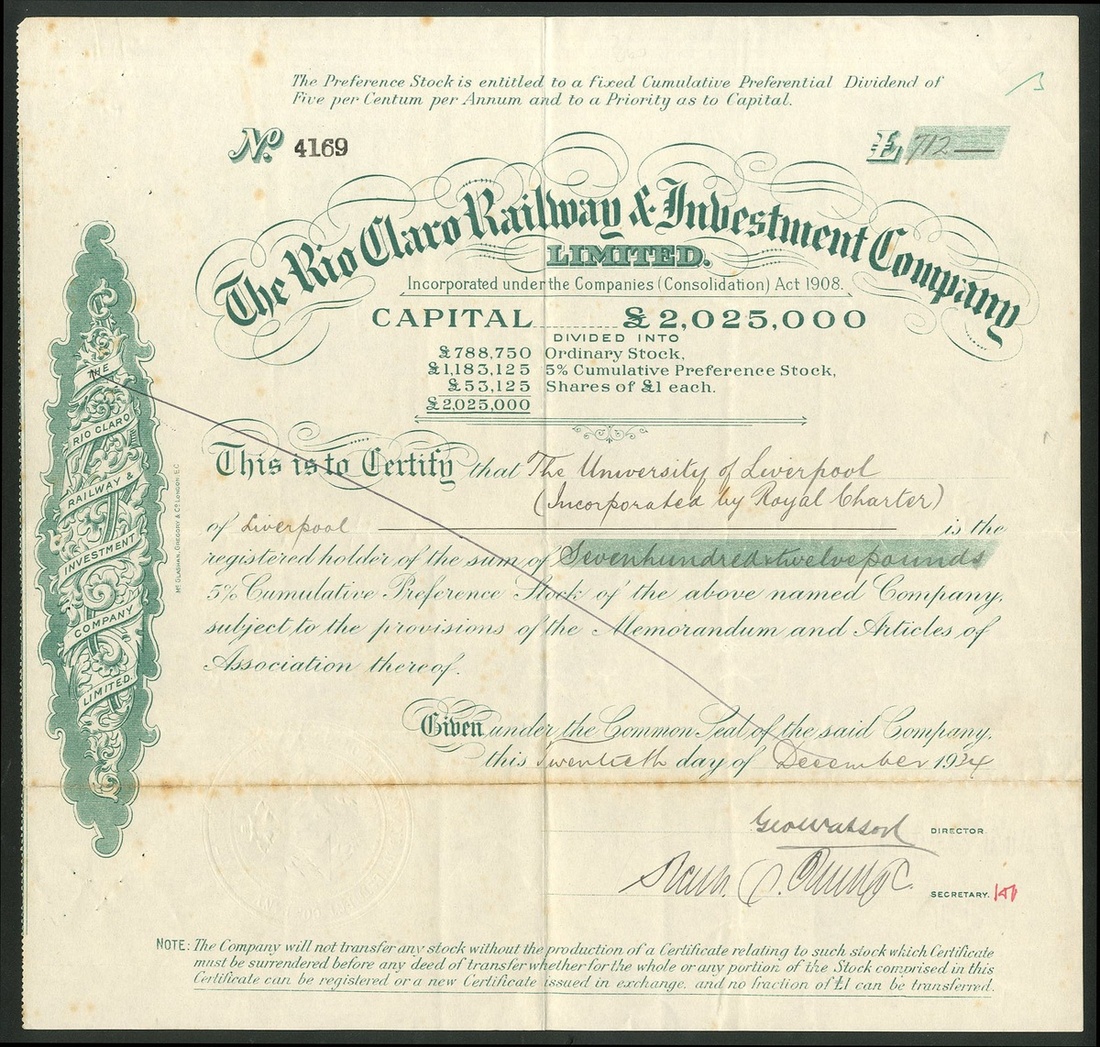 The Preference Stock is entitled to a fixed Cumulative Preferential Dividend of
Five per Centum per Annum and to a Priority as to Capital.
No. 4169
£ 712 —
The Rio Claro Railway & Investment Company
LIMITED.
Incorporated under the Companies (Consolidation) Act 1908.
CAPITAL ........ £2,025,000
DIVIDED INTO
£788,750 Ordinary Stock,
£1,183,125 5% Cumulative Preference Stock,
£53,125 Shares of £1 each.
£2,025,000
THE
RIO CLARO
RAILWAY &
INVESTMENT
COMPANY
LIMITED.
Mc GLASHAN, GREGORY & Co LONDON, E.C.
This is to Certify that The University of Liverpool
(Incorporated by Royal Charter)
of Liverpool is the
registered holder of the sum of Sevenhundred & twelve pounds
5% Cumulative Preference Stock of the above named Company,
subject to the provisions of the Memorandum and Articles of
Association thereof.
Given under the Common Seal of the said Company,
this twentieth day of December 1934
Geo Watson DIRECTOR
SECRETARY.
NOTE: The Company will not transfer any stock without the production of a Certificate relating to such stock which Certificate
must be surrendered before any deed of transfer whether for the whole or any portion of the Stock comprised in this
Certificate can be registered or a new Certificate issued in exchange, and no fraction of £1 can be transferred.